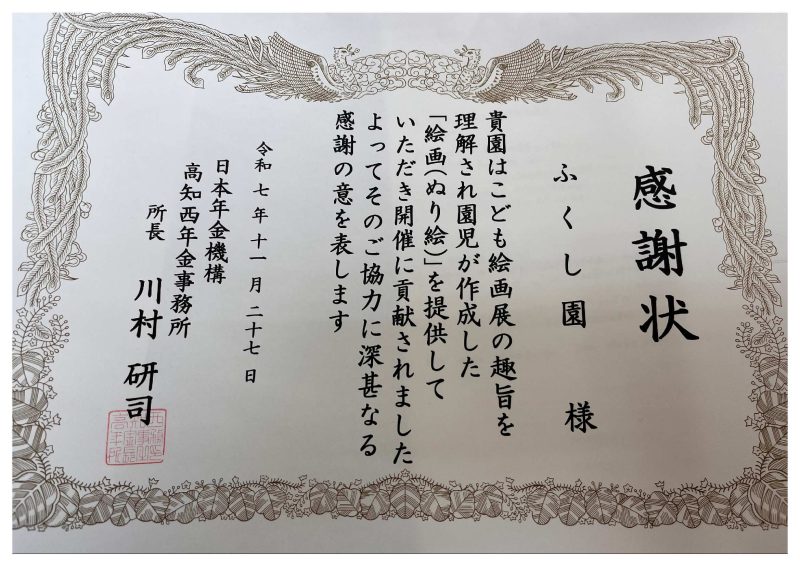 感謝状
ふくし園 様
貴園はこども絵画展の趣旨を
理解され園児が作成した
「絵画(ぬり絵)」を提供して
いただき開催に貢献されました
よってそのご協力に深甚なる
感謝の意を表します
令和七年十一月二十七日
日本年金機構
高知西年金事務所
所長 川村 研司